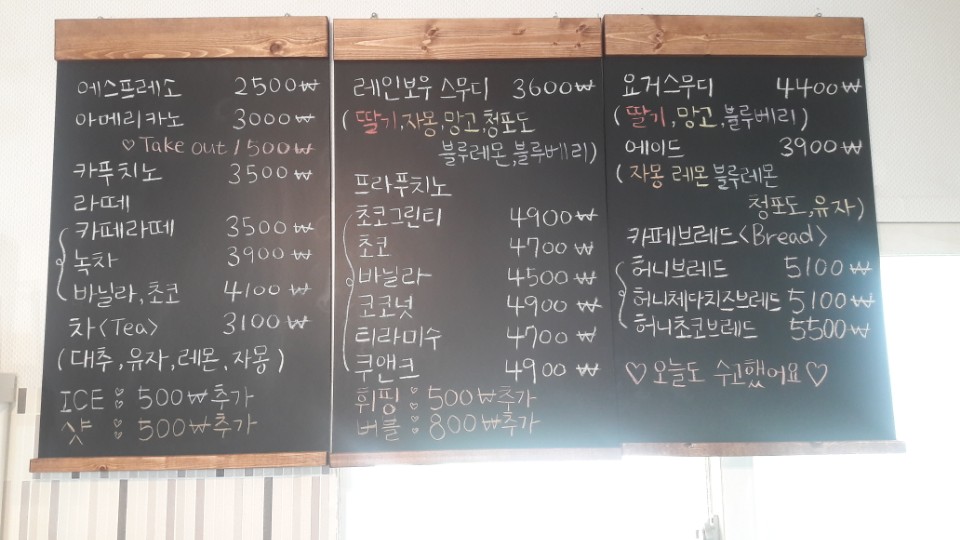 에스프레소 2500₩
아메리카노 3000₩
♡ Take out 1500₩
카푸치노 3500₩
라떼
카페라떼 3500₩
녹차 3900₩
바닐라, 초코 4100₩
차<Tea> 3100₩
(대추, 유자, 레몬, 자몽)
ICE : 500₩추가
샷 : 500₩추가
레인보우 스무디 3600₩
(딸기, 자몽, 망고, 청포도
블루레몬, 블루베리)
프라푸치노
초코그린티 4900₩
초코 4700₩
바닐라 4500₩
코코넛 4900₩
티라미수 4700₩
쿠앤크 4900₩
휘핑 : 500₩추가
버블 : 800₩추가
요거스무디 4400₩
(딸기, 망고, 블루베리)
에이드 3900₩
(자몽 레몬 블루레몬
청포도, 유자)
카페브레드<Bread>
허니브레드 5100₩
허니체다치즈브레드 5100₩
허니초코브레드 5500₩
♡오늘도 수고했어요♡